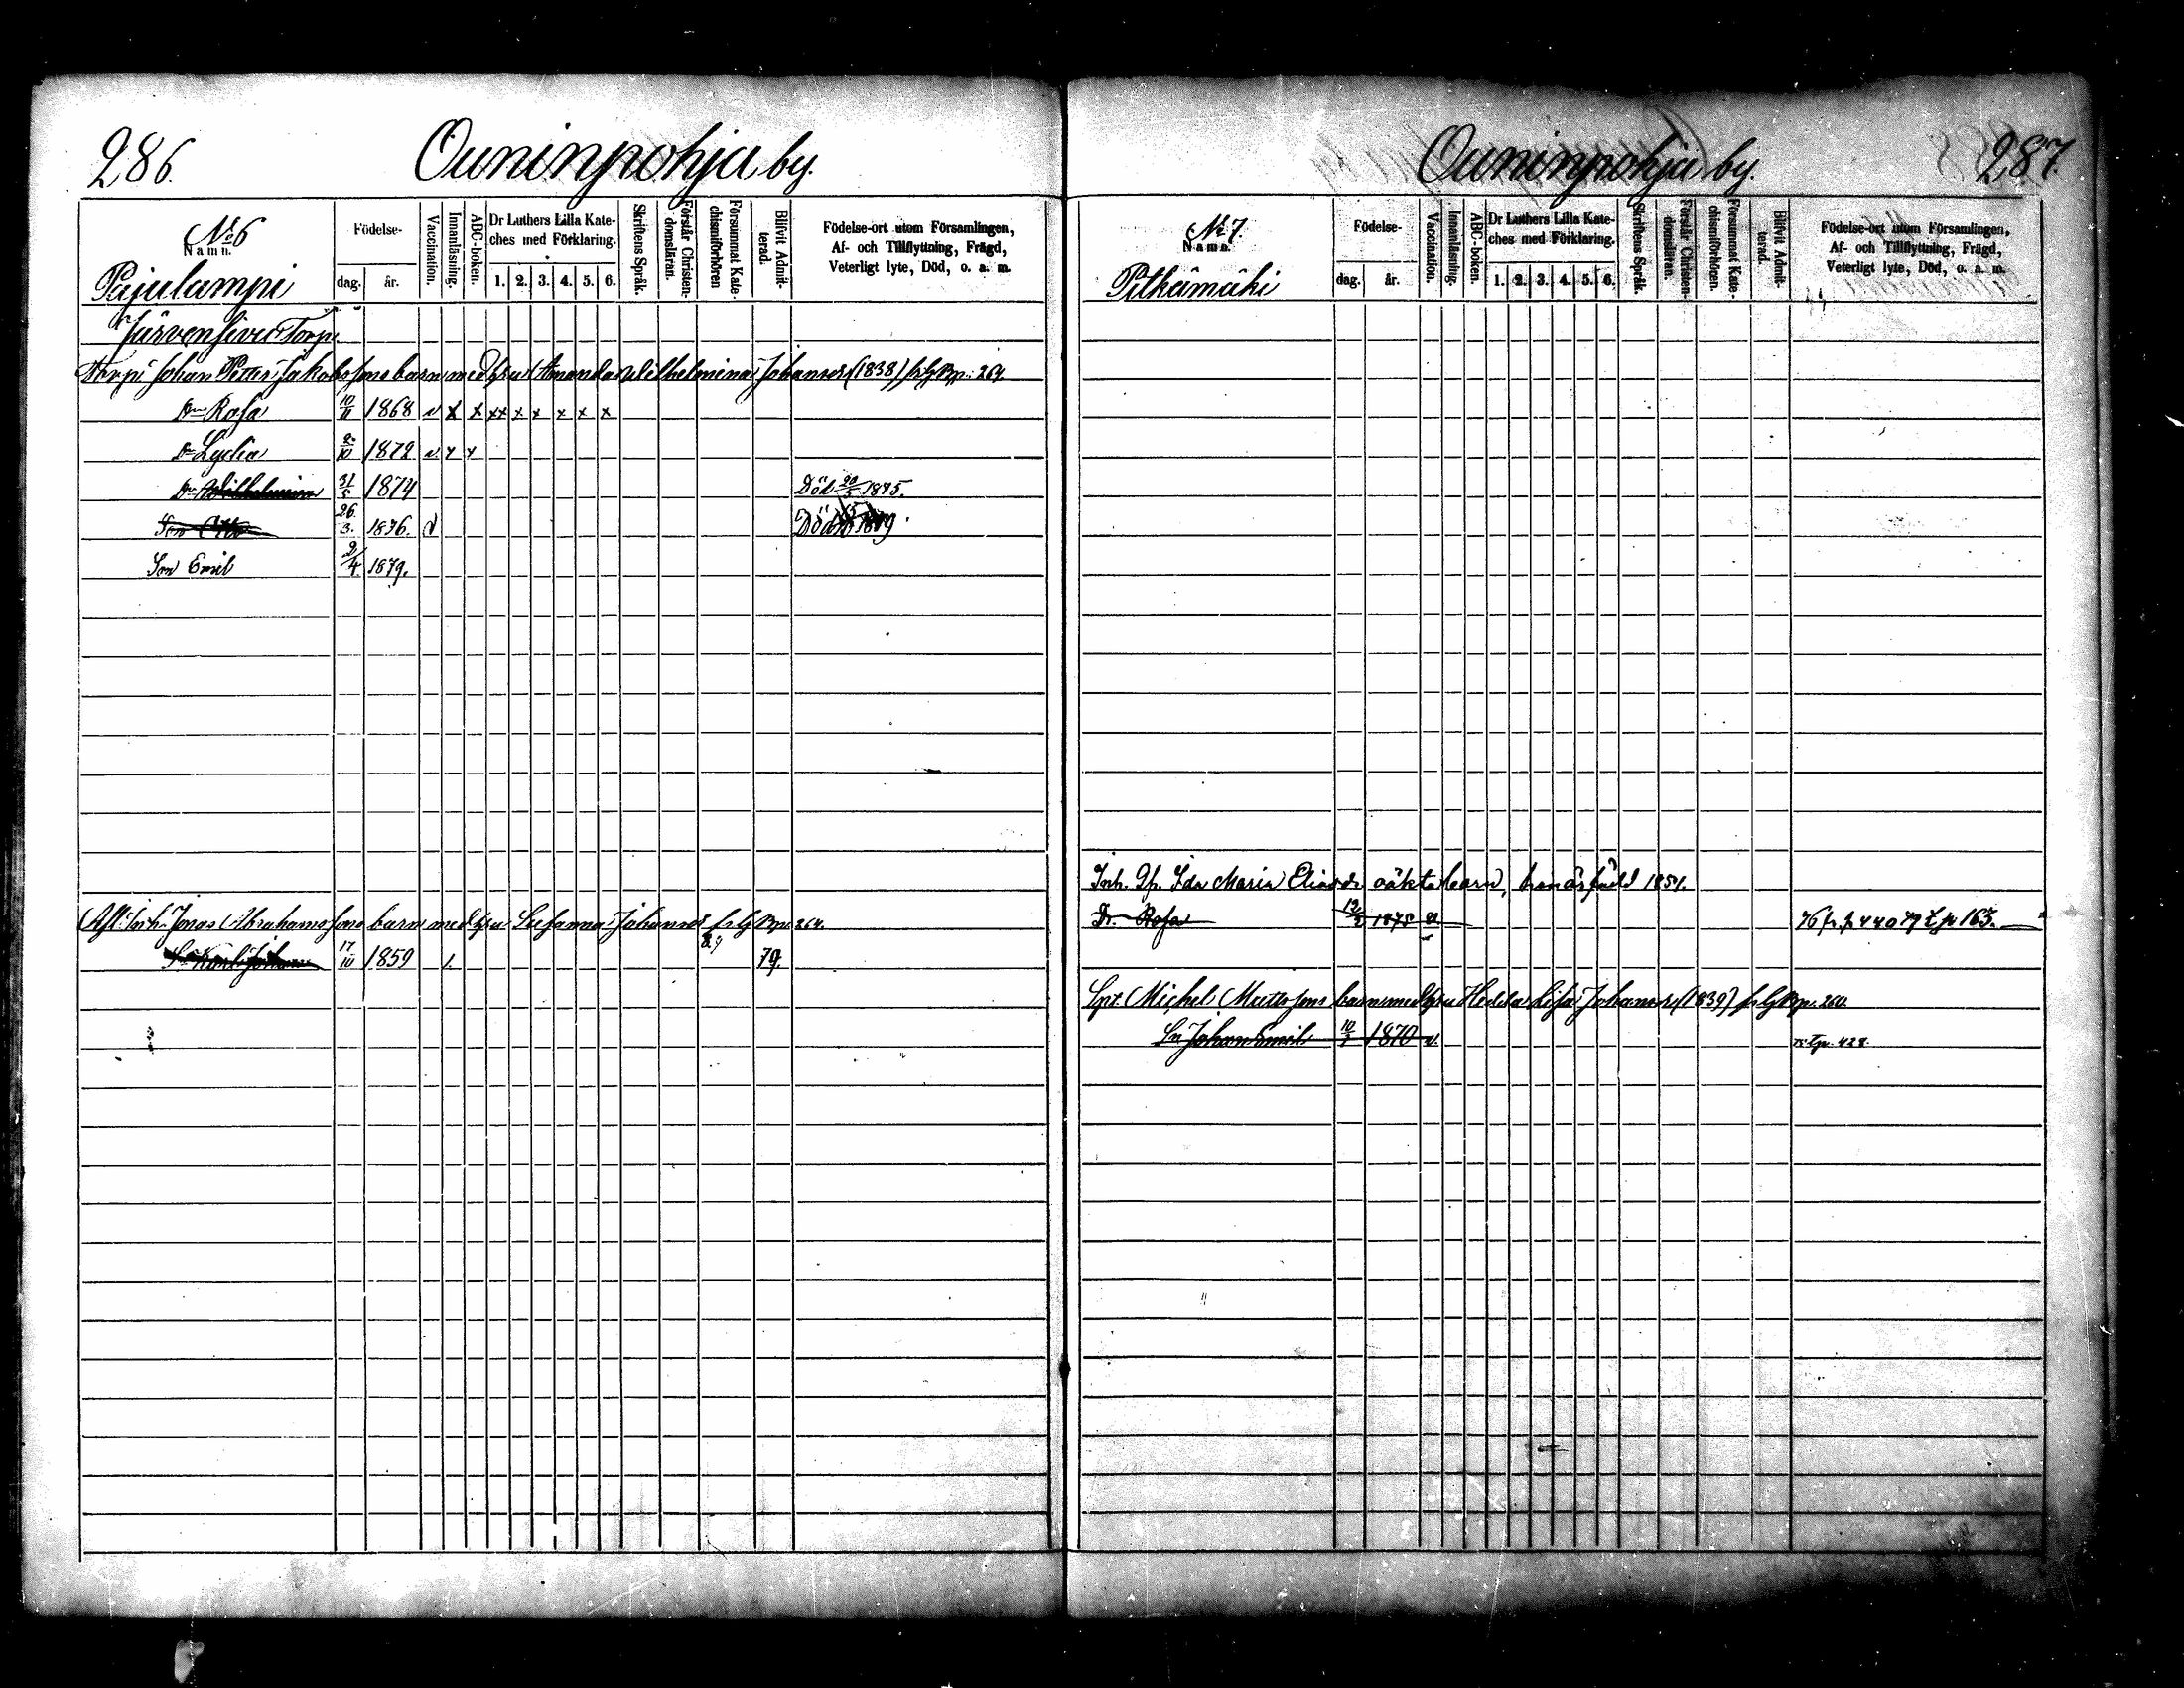 286. Ouninpohja by.
No 6
Namn.
Pajulampi
Födelse-
dag. år.
Vaccination.
Innanläsning.
ABC-boken.
Dr Luthers Lilla Kate-
ches med Förklaring.
1. 2. 3. 4. 5. 6.
Skriftens Språk.
Förstår Christen-
domsläran.
Försummat Kate-
chismiförhören
Blifvit Admit-
terad.
Födelse-ort utom Församlingen,
Af- och Tillflyttning, Frägd,
Veterligt lyte, Död, o. a. m.
Torp
Johan Petter Jakobssons barn med hu Amanda Wilhelmina Johansdr (1838)
Dr Rosa 10/11 1868 v x x xx x x x x x
Dr Lydia 2/10 1872 v. x x
Dr Wilhelmina 31/5 1874 Död 20/5 1875.
Son Otto 26/3. 1876. v Död 1879
Son Emil 2/4 1879.
Inh. Jonas Abrahamssons barn med hu Susanna Johansd 264.
Sn Karl Johan 17/10 1859 1. 79.
Ouninpohja by. 287.
No 7.
Namn.
Pitkämäki
Födelse-
dag. år.
Vaccination.
Innanläsning.
ABC-boken.
Dr Luthers Lilla Kate-
ches med Förklaring.
1. 2. 3. 4. 5. 6.
Skriftens Språk.
Förstår Christen-
domsläran.
Försummat Kate-
chismiförhören.
Blifvit Admit-
terad.
Födelse-ort utom Församlingen,
Af- och Tillflyttning, Frägd,
Veterligt lyte, Död, o. a. m.
Inh. Ida Maria Eliasdr oäkta barn, hon är född 1851.
Dr. Rosa 1875
Michel Mattssons barn med hu Hedda Lisa Johansdr (1839) 260.
Sn Johan Emil 1870 v.